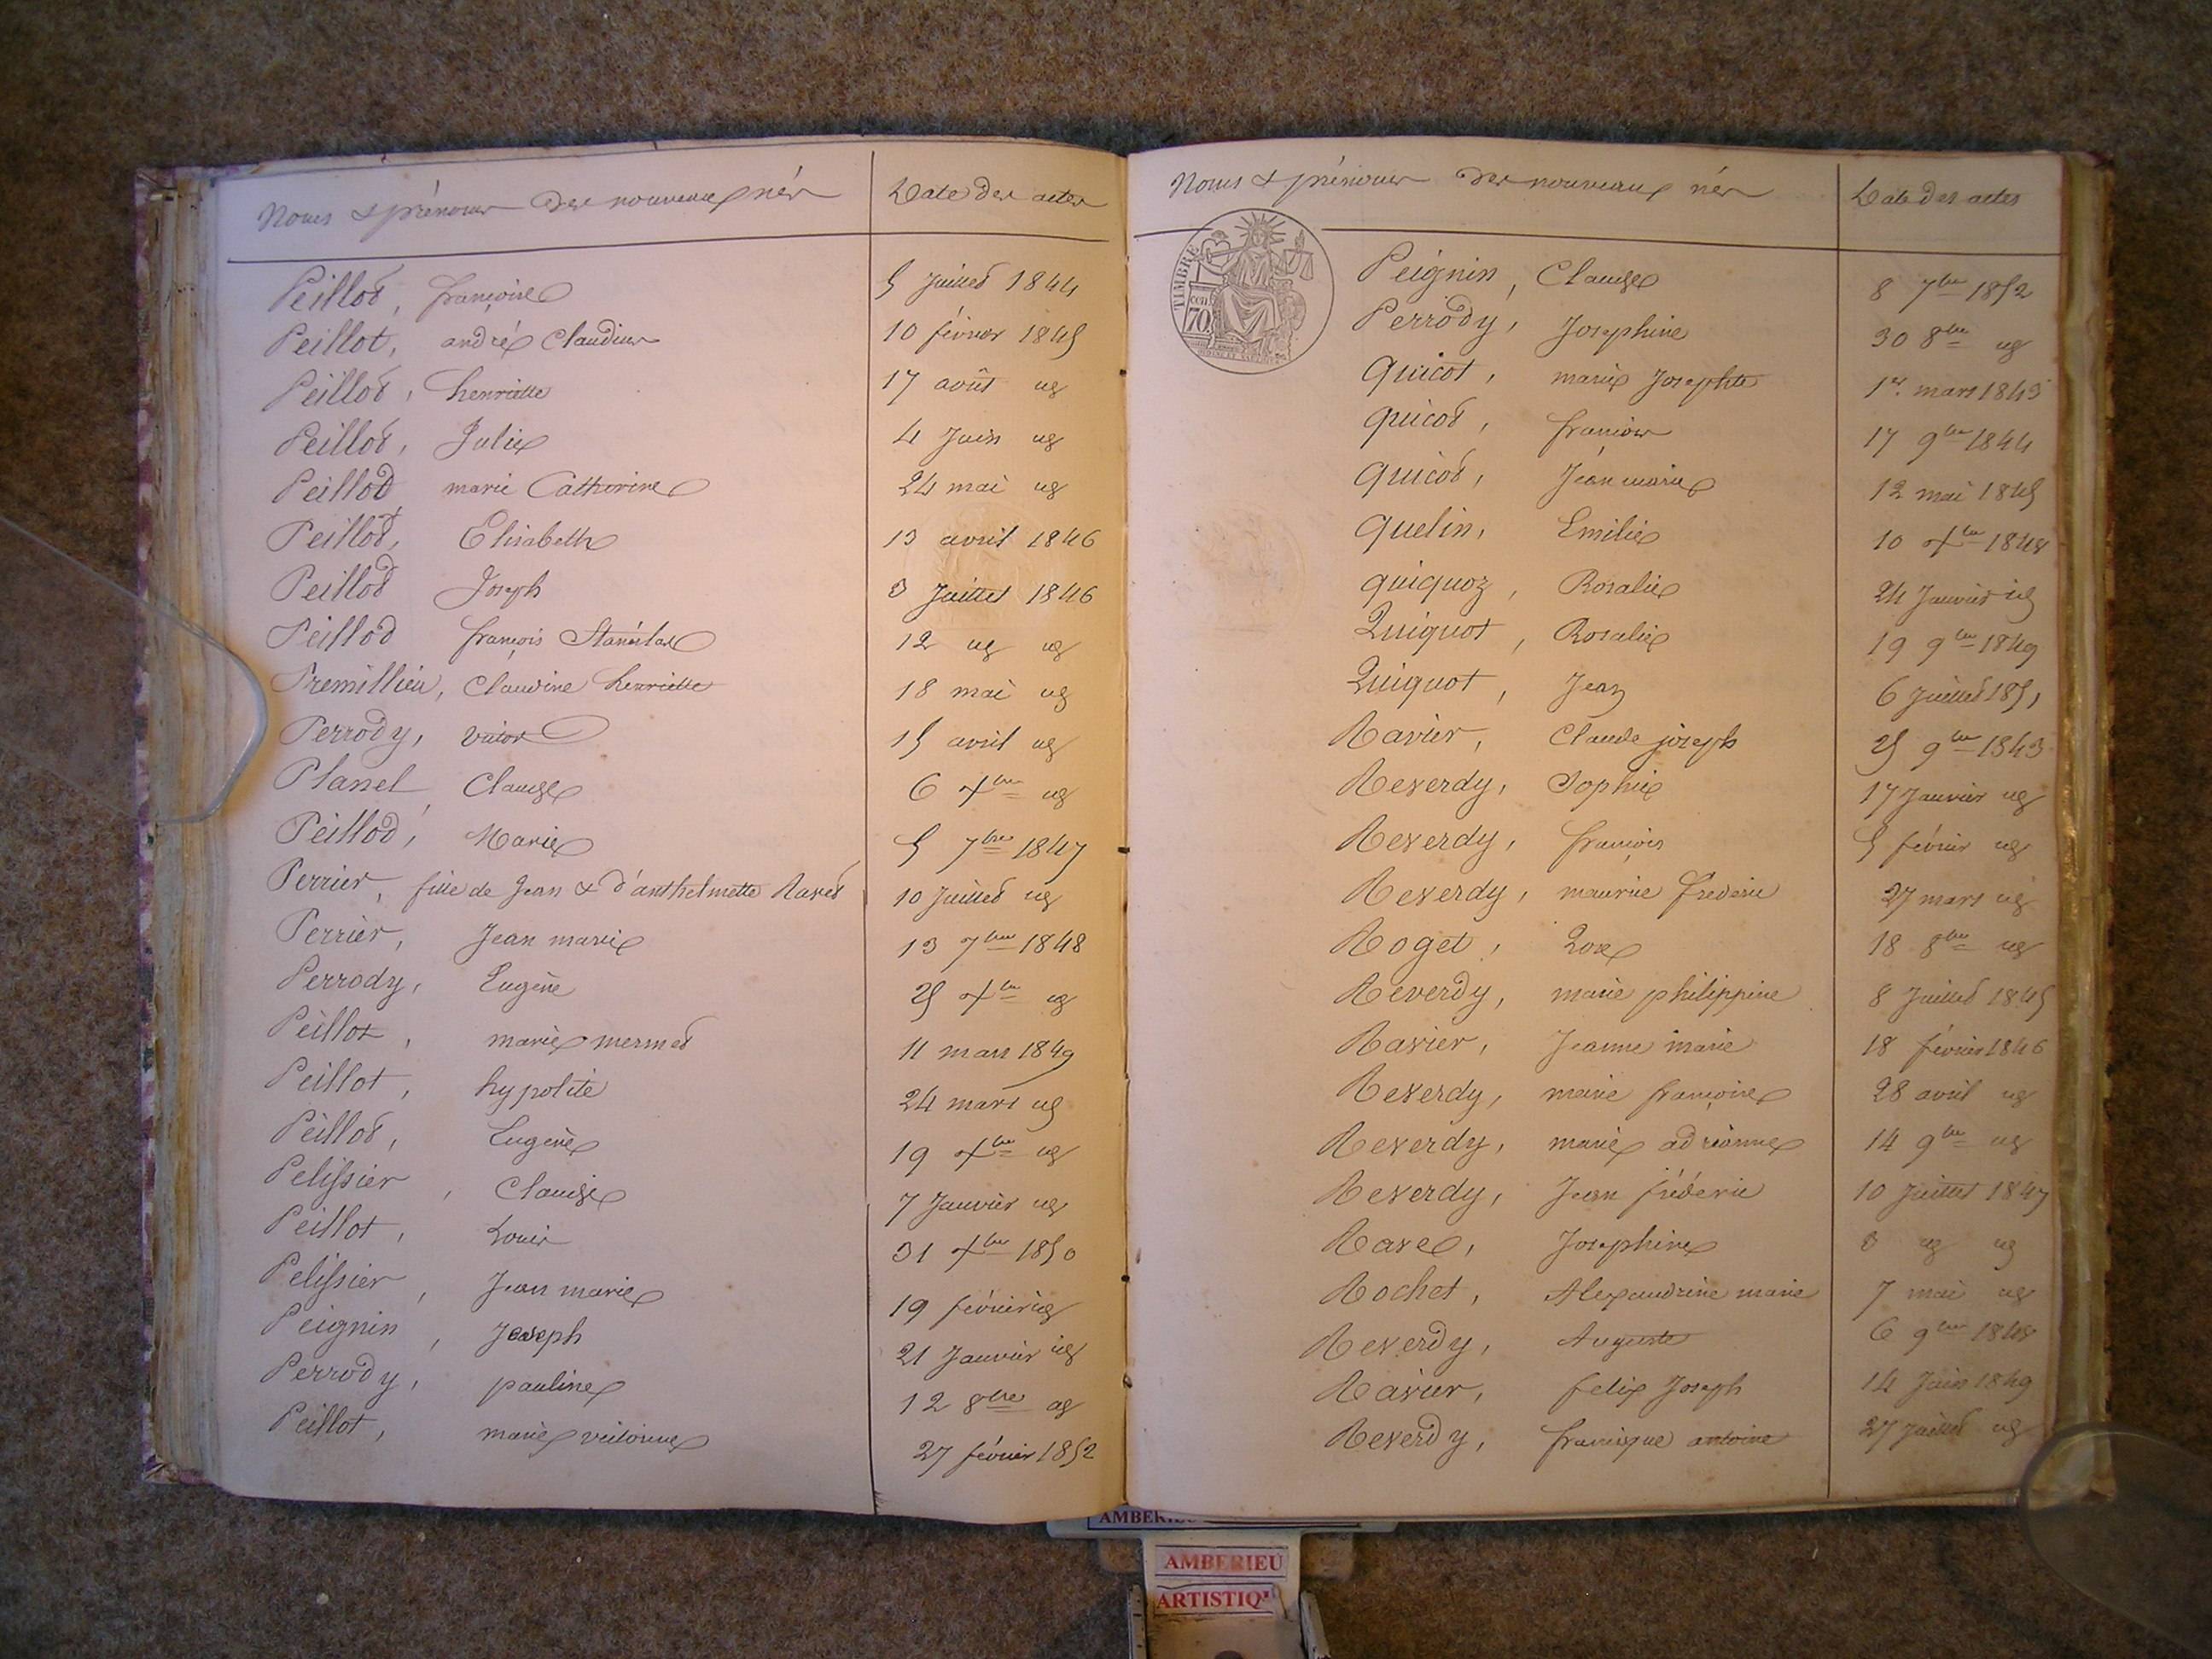 Noms & prénoms des nouveaux nés Date des actes
Peillod, françoise 5 Juillet 1844
Peillot, andré Claudius 10 février 1845
Peillod, henriette 17 août id
Peillod, Julie 4 Juin id
Peillod marie Catherine 24 mai id
Peillod, Elisabeth 13 avril 1846
Peillod Joseph 3 Juillet 1846
Peillod françois Stanislas 12 id id
Premillieu, Claudine henriette 18 mai id
Perrody, victor 15 avril id
Planel, Claude 6 Xbre id
Peillod, Marie 5 7bre 1847
Perrier, fille de Jean & d'anthelmette Ravet 10 Juillet id
Perrier, Jean marie 13 7bre 1848
Perrody, Eugène 25 Xbre id
Peillot, marie mermet 11 mars 1849
Peillot, hypolite 24 mars id
Peillod, Eugène 19 Xbre id
Pelissier, Claude 7 Janvier id
Peillot, Louis 31 Xbre 1850
Pelissier, Jean marie 19 février id
Peignin, Joseph 21 Janvier id
Perrody, pauline 12 8bre id
Peillot, marie victorine 27 février 1852
Noms & prénoms des nouveaux nés Date des actes
TIMBRE
cen
70
Peignin, Claude 8 7bre 1852
Perrody, Josephine 30 8bre id
Quicot, marie Josephte 1er mars 1843
Quicot, françois 17 9bre 1844
Quicot, Jean marie 12 mai 1845
Quelin, Emilie 10 Xbre 1848
Quiquoz, Rosalie 24 Janvier id
Quiquot, Rosalie 19 9bre 1849
Quiquot, Jean 6 Juillet 1851
Ravier, Claude joseph 25 9bre 1843
Reverdy, Sophie 17 Janvier id
Reverdy, françois 5 février id
Reverdy, maurice frederic 27 mars id
Roget, Rose 18 8bre id
Reverdy, marie philippine 8 Juillet 1845
Ravier, Jeanne marie 18 février 1846
Reverdy, marie françoise 28 avril id
Reverdy, marie adrianne 14 9bre id
Reverdy, Jean fréderic 10 Juillet 1847
Ravet, Josephine 3 id id
Rochet, Alexandrine marie 7 mai id
Reverdy, Auguste 6 9bre 1848
Ravier, felix Joseph 14 Juin 1849
Reverdy, francisque antoine 27 Juillet id
AMBERIEU
ARTISTIQ